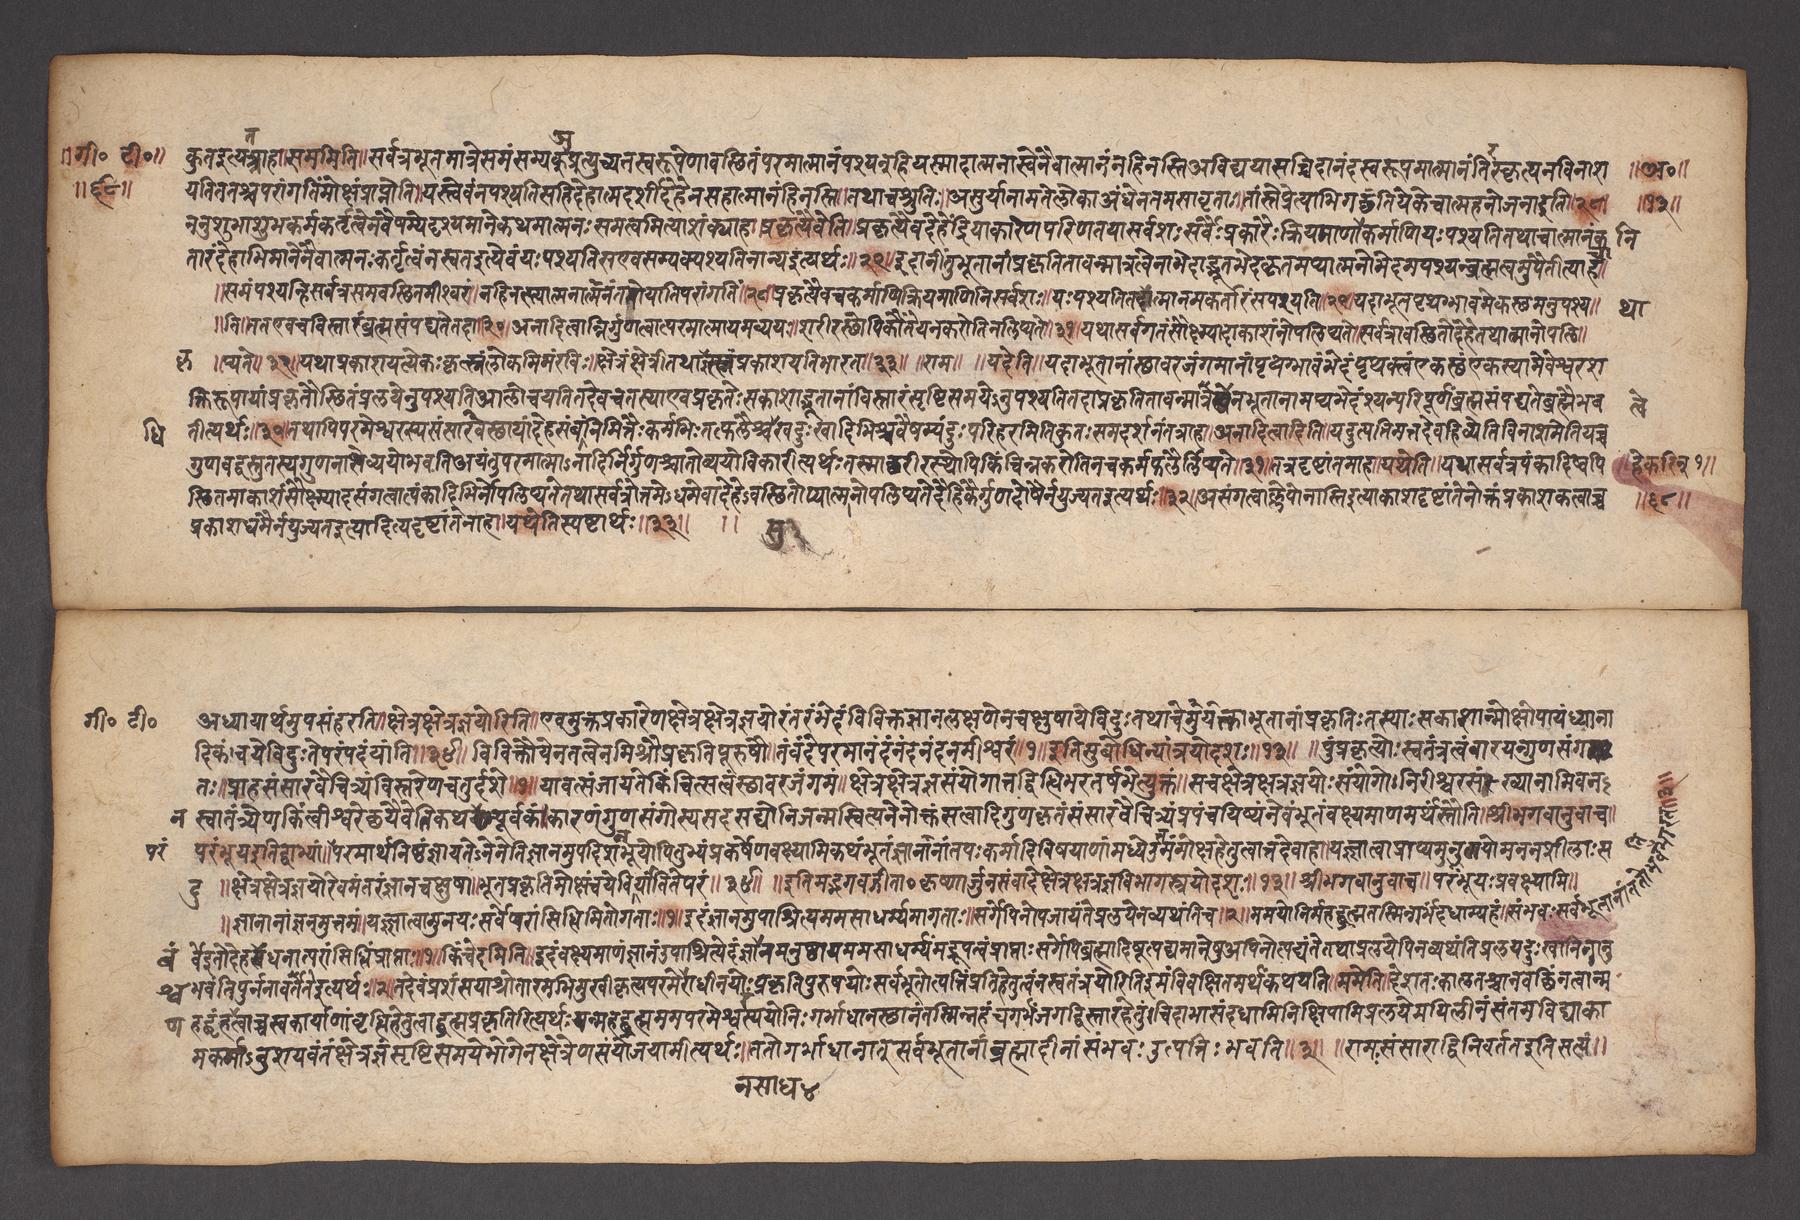 गी० टी०
कुतइत्यत्राह।।सममिति।।सर्वत्रभूतमात्रेसमंसम्यक्अप्रच्युतस्वरूपेणावस्थितंपरमात्मानंपश्यन्हियस्मादात्मनास्वेनैवात्मानंनहिनस्तिअविद्ययासच्चिदानंदस्वरूपमात्मानंतिरस्कृत्यनविनाश
अ०
॥६८॥
यतिततश्चपरांगतिंमोक्षंप्राप्नोति।यस्त्वेवंनपश्यतिसहिदेहात्मदर्शीदेहेनसहात्मानंहिनस्ति।तथाचश्रुतिः॥असुर्यानामतेलोकाअंधेनतमसावृताः।तांस्तेप्रेत्याभिगच्छंतियेकेचात्महनोजनाइति॥२८॥
॥१३॥
ननुशुभाशुभकर्मकर्तृत्वेनवैषम्येदृश्यमानेकथमात्मनःसमत्वमित्याशंक्याह।प्रकृत्यैवेति।प्रकृत्यैवदेहेंद्रियाकारेणपरिणतयासर्वशःसर्वैःप्रकारैःक्रियमाणाकर्माणियःपश्यतितथाचात्मानंक
नि
तारंदेहाभिमानेनैवात्मनःकर्तृत्वंनस्वतइत्येवंयःपश्यतिसएवसम्यक्पश्यतिनान्यइत्यर्थः॥२९॥इदानींतुभूतानांप्रकृतितावन्मात्रत्वेनाभेदाद्भूतभेदकृतमप्यात्मनोभेदमपश्यन्ब्रह्मत्वमुपैतीत्याह
॥समंपश्यन्हिसर्वत्रसमवस्थितमीश्वरं।नहिनस्त्यात्मनात्मानंततोयातिपरांगतिं॥२८॥प्रकृत्यैवचकर्माणिक्रियमाणिनिसर्वशः।यःपश्यतितथात्मानमकर्तारंसपश्यति॥२९॥यदाभूतपृथग्भावमेकस्थमनुपश्य॥
था
॥ति।ततएवचविस्तारंब्रह्मसंपद्यतेतदा॥३०॥अनादित्वान्निर्गुणत्वात्परमात्मायमव्ययः।शरीरस्थोपिकौंतेयनकरोतिनलिप्यते॥३१॥यथासर्वगतंसौक्ष्म्यादाकाशंनोपलिप्यते।सर्वत्रावस्थितोदेहेतथात्मानोपलि॥
॥प्यते॥३२॥यथाप्रकाशयत्येकःकृत्स्नंलोकमिमंरविः।क्षेत्रंक्षेत्रीतथाकृत्स्नंप्रकाशयतिभारत॥३३॥ ॥राम॥ ॥यदेति।।यदाभूतानांस्थावरजंगमानांपृथग्भावंभेदंपृथक्त्वंएकस्थंएकस्यामेवेश्वरश
क्तिरूपायांप्रकृतौस्थितंप्रलयेनुपश्यतिआलोचयतिततएवचतस्याएवप्रकृतेःसकाशाद्भूतानांविस्तारंसृष्टिसमयेऽनुपश्यतितदाप्रकृतितावन्मात्रत्वेनभूतानामप्यभेदंपश्यन्परिपूर्णंब्रह्मसंपद्यतेब्रह्मैवभव
त्वे
धि
तीत्यर्थः॥३०॥तथापिपरमेश्वरस्यसंसारेवस्थायांदेहसंबंधनिमित्तैःकर्मभिःतत्फलैश्चसुखदुःखादिभिश्चवैषम्यंदुःपरिहरमितिकुतःसमदर्शनंतत्राह।अनादित्वादिति।यदुत्पत्तिमत्तदेवहिव्येतिविनाशमेतियच्च
गुणवद्वस्तुतस्यगुणनाशेव्ययोभवतिअयंतुपरमात्माऽनादिर्निर्गुणश्चातोव्ययोविकारीत्यर्थःतस्माच्छरीरस्थोपिकिंचिन्नकरोतिनचकर्मफलैर्लिप्यते॥३१॥तत्रदृष्टांतमाह।यथेति।।यथासर्वत्रपंकादिष्वपि
स्थितमाकाशंसौक्ष्म्यादसंगत्वात्पंकादिभिर्नोपलिप्यतेतथासर्वत्रोत्तमेऽधमेवादेहेऽवस्थितोप्यात्मानोपलिप्यतेदैहिकैर्गुणदोषैर्नयुज्यतइत्यर्थः॥३२॥असंगत्वाल्लेपोनास्तिइत्याकाशदृष्टांतेनोक्तंप्रकाशकत्वाच्च
॥६८॥
प्रकाशधर्मैर्नयुज्यतइत्यादित्यदृष्टांतेनाह।यथेतिस्पष्टार्थः॥३३॥
गी० टी०
अध्यायार्थमुपसंहरति।क्षेत्रक्षेत्रज्ञयोरिति।एवमुक्तप्रकारेणक्षेत्रक्षेत्रज्ञयोरंतरंभेदंविविक्तज्ञानलक्षणेनचक्षुषायेविदुःतथाचेमुयेक्ताभूतानांप्रकृतिःतस्याःसकाशान्मोक्षोपायंध्याना
दिकंचयेविदुःतेपरंपदंयांति॥३४॥विविक्तौयेनतत्वेनमिश्रौप्रकृतिपूरुषौ।तंवंदेपरमानंदंनंदनंदनमीश्वरं॥१॥इतिसुबोधिन्यांत्रयोदशः॥१३॥ ॥पुंप्रकृत्योःस्वतंत्रत्वंवारयन्गुणसंग
तः।प्राहसंसारवैचित्र्यंविस्तरेणचतुर्दशे॥१॥यावत्संजायतेकिंचित्सत्वंस्थावरजंगमं।क्षेत्रक्षेत्रज्ञसंयोगात्तद्विद्धिभरतर्षभेत्युक्तं।सचक्षेत्रक्षेत्रज्ञयोःसंयोगोनिरीश्वरसांख्यानामिवन
न
स्वातंत्र्येणकिंत्वीश्वरेच्छयैवेतिकथनपूर्वकं।कारणंगुणसंगोस्यसदसद्योनिजन्मस्वित्यनेनोक्तंसत्वादिगुणकृतंसंसारवैचित्र्यंप्रपंचयिष्यन्नेवंभूतंवक्ष्यमाणमर्थंस्तौति।श्रीभगवानुवाच॥
परं
परंभूयइतिद्वाभ्यां।परमार्थनिष्ठंज्ञायतेऽनेनेतिज्ञानमुपदिशन्भूयोपितुभ्यंप्रकर्षेणवक्ष्यामिकथंभूतंज्ञानानांतपःकर्मादिविषयाणांमध्येउत्तमंमोक्षहेतुत्वात्तदेवाह।यज्ज्ञात्वाप्राप्यमुनयोमननशीलाःस
॥क्षेत्रक्षेत्रज्ञयोरेवमंतरंज्ञानचक्षुषा।भूतप्रकृतिमोक्षंचयेविदुर्यांतितेपरं॥३४॥ ॥इतिमद्भगवद्गीता०कृष्णार्जुनसंवादेक्षेत्रक्षेत्रज्ञविभागस्त्रयोदशः॥१३॥श्रीभगवानुवाच॥परंभूयःप्रवक्ष्यामि॥
॥ज्ञानानांज्ञानमुत्तमं।यज्ज्ञात्वामुनयःसर्वेपरांसिद्धिमितोगताः॥१॥इदंज्ञानमुपाश्रित्यममसाधर्म्यमागताः।सर्गेपिनोपजायंतेप्रलयेनव्यथंतिच॥२॥ममयोनिर्महद्ब्रह्मतस्मिन्गर्भंदधाम्यहं।संभवःसर्वभूतानांततोभवतिभारत॥३॥
र्वेइतोदेहबंधनात्परांसिद्धिंप्राप्ताः॥१॥किंचेदमिति।इदंवक्ष्यमाणंज्ञानंउपाश्रित्येदंज्ञानमनुष्ठायममसाधर्म्यंमद्रूपत्वंप्राप्ताःसर्गेपिब्रह्मादिषूत्पद्यमानेषुअपिनोत्पद्यंतेतथाप्रलयेपिनव्यथंतिप्रलयदुःखंनानु
श्व
भवंतिपुनर्नावर्तंतेइत्यर्थः॥२॥तदेवंप्रशंसयाश्रोतारमभिमुखीकृत्यपरमेराधीनयोःप्रकृतिपुरुषयोःसर्वभूतोत्पत्तिंप्रतिहेतुत्वंनस्वतंत्रयोरितिइमंविवक्षितमर्थंकथयति।ममेति।देशतःकालतश्चानवच्छिन्नत्वान्म
ण
हद्बृंहितत्वाच्चस्वकार्याणांवृद्धिहेतुत्वाद्ब्रह्मप्रकृतिरित्यर्थःतन्महद्ब्रह्मममपरमेश्वरस्ययोनिःगर्भाधानस्थानंतस्मिन्नहंगर्भंजगद्विस्तारहेतुं।चिदाभासंदधामिनिक्षिपामिप्रलयेमयिलीनंसंतमविद्याका
मकर्माऽनुशयवंतंक्षेत्रज्ञंसृष्टिसमयेभोगेनक्षेत्रेणसंयोजयामीत्यर्थः।ततोगर्भाधानात्सर्वभूतानांब्रह्मादीनांसंभवःउत्पत्तिःभवति॥३॥ ॥रामःसंसाराद्विनिवर्ततइतिसत्यं॥
नसाध४